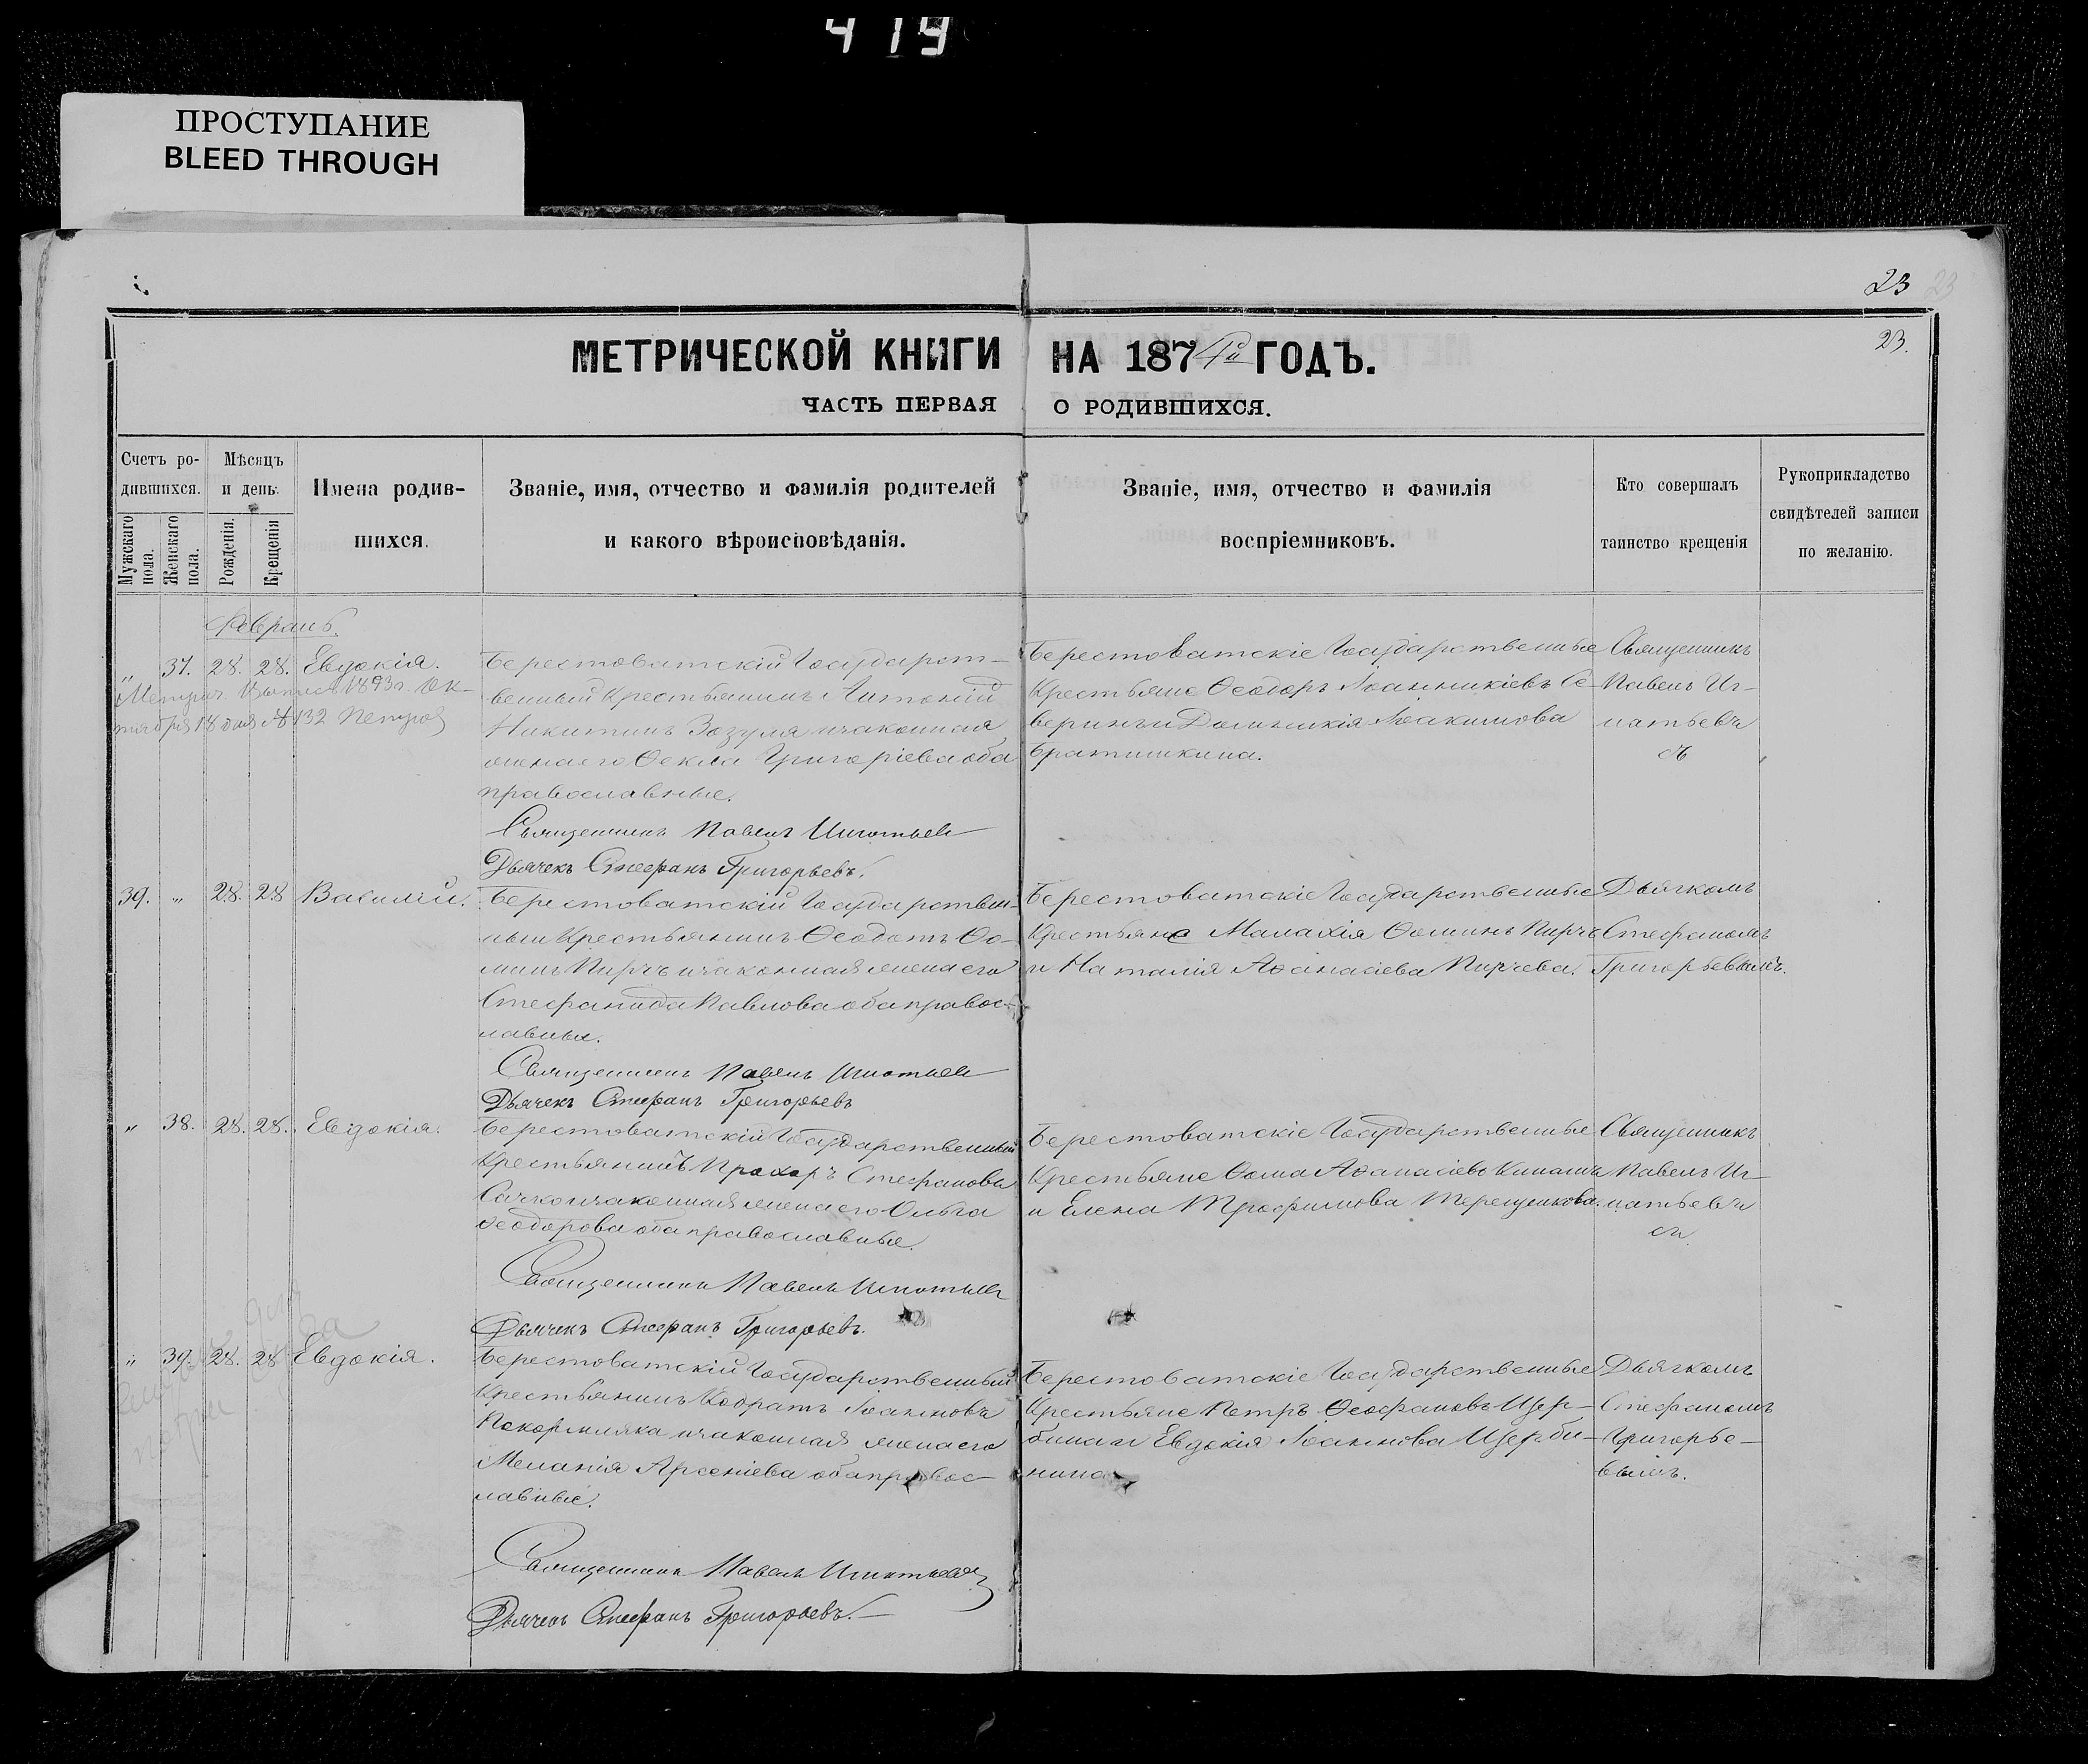 419
ПРОСТУПАНИЕ
BLEED THROUGH
23
23.
МЕТРИЧЕСКОЙ КНИГИ НА 1874й ГОДЪ.
ЧАСТЬ ПЕРВАЯ О РОДИВШИХСЯ.
Счетъ ро-
дившихся.
Мужскаго
пола.
Женскаго
пола.
Мѣсяцъ
и день.
Рожденія.
Крещенія
Имена родив-
шихся.
Званіе, имя, отчество и фамилія родителей
и какого вѣроисповѣданія.
Званіе, имя, отчество и фамилія
воспріемниковъ.
Кто совершалъ
таинство крещенія
Рукоприкладство
свидѣтелей записи
по желанію.
Февраль.
„ 37. 28. 28. Евдокія.
1893г. Ок-
тября 18 дня № 132
Берестоватскій Государст-
венный Крестьянинъ Антоній
Никитинъ Зозуля и законная
жена его Ѳекла Григоріева оба
православные.
Священникъ Павелъ Игнатьевъ
Дьячекъ Стефанъ Григорьевъ.
Берестоватскіе Государственные
Крестьяне Ѳеодоръ Іоанникіевъ Се-
веринъ и Домникія Іоакимова
Братишкина.
Священникъ
Павелъ Иг-
натьевъ
39. „ 28. 28 Василій.
Берестоватскій Государствен-
ный Крестьянинъ Ѳеодотъ Ѳо-
минъ Пирчъ и законная жена его
Стефанида Павлова оба правос-
лавные.
Священникъ Павелъ Игнатьевъ
Дьячекъ Стефанъ Григорьевъ
Берестоватскіе Государственные
Крестьяне Малахія Ѳоминъ Пирчъ
и Наталія Аѳанасіева Пирчева.
Дьячкомъ
Стефаномъ
Григорьевымъ.
„ 38. 28. 28. Евдокія.
Берестоватскій Государственный
Крестьянинъ Прохоръ Стефановъ
Сачко и законная жена его Ольга
Ѳеодорова оба православные.
Священникъ Павелъ Игнатьевъ
Дьячекъ Стефанъ Григорьевъ.
Берестоватскіе Государственные
Крестьяне Ѳома Аѳанасіевъ
и Елена Трофимова Терещенкова.
Священникъ
Павелъ Иг-
натьевъ
„ 39. 28. 28 Евдокія.
Берестоватскій Государственный
Крестьянинъ Кодратъ Іоанновъ
Покормляка и законная жена его
Меланія Арсеніева оба правос-
лавные.
Священникъ Павелъ Игнатьевъ
Дьячекъ Стефанъ Григорьевъ.
Берестоватскіе Государственные
Крестьяне Петръ Ѳеофановъ Щер-
бина и Евдокія Іоаннова Щерби-
нина
Дьячкомъ
Стефаномъ
Григорье-
вымъ.